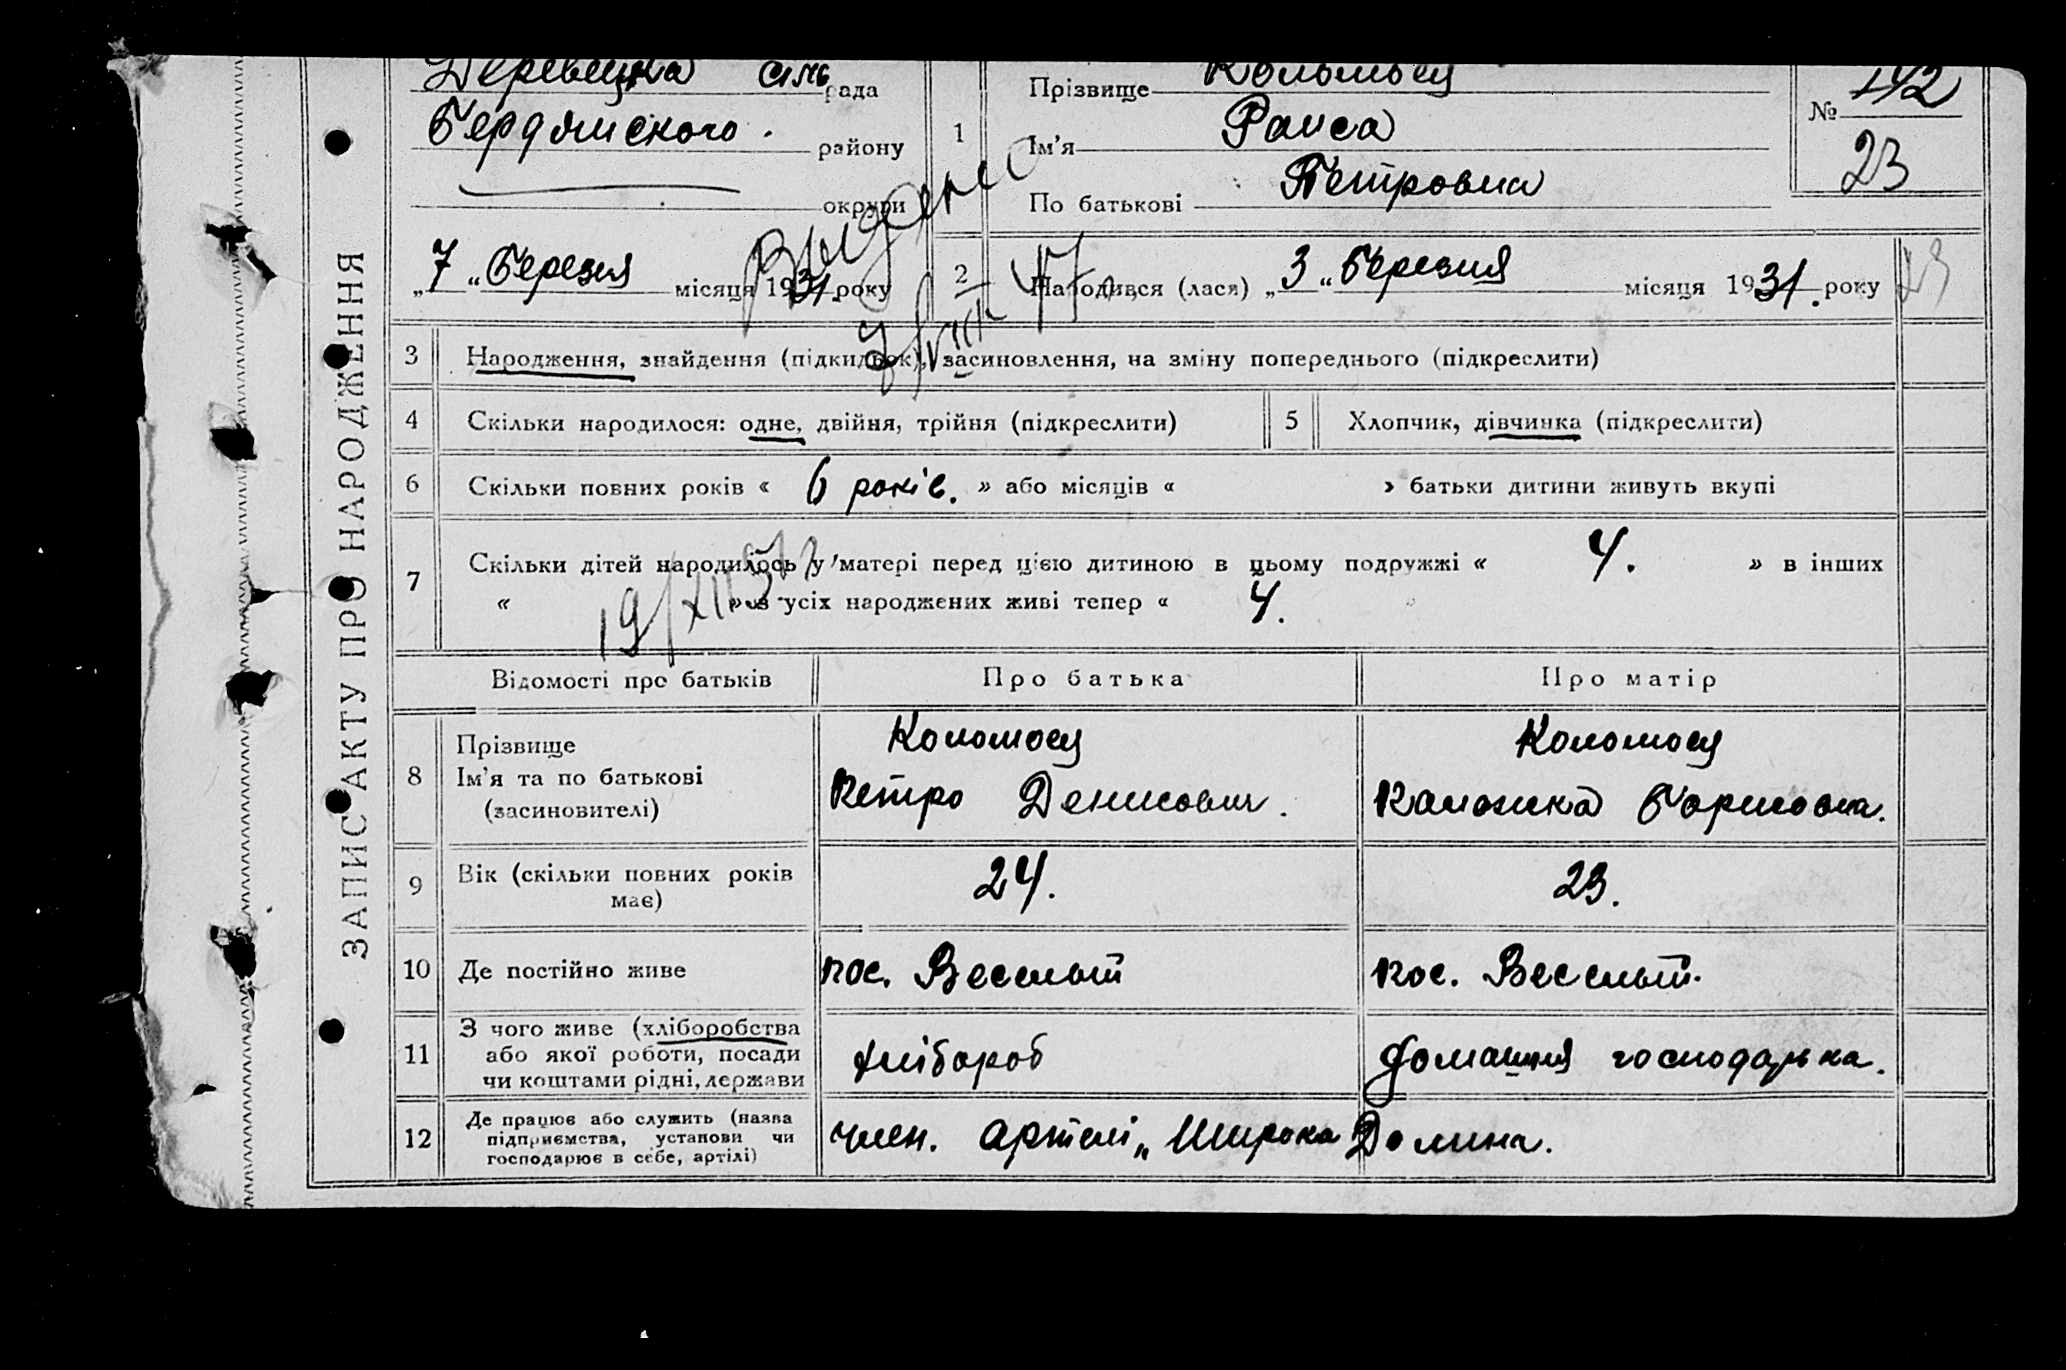 ЗАПИС АКТУ ПРО НАРОДЖЕННЯ
Деревецка сіль рада
Бердянского району
округи
„7“ Березня місяця 1931. року
1
Прізвище Коломоец
Ім'я Раиса
По батькові Петровна
№ 142
23
Выдано
2 Народився (лася) „3“ Березня місяця 1931. року
23
3 Народження, знайдення (підкидьок), засиновлення, на зміну попереднього (підкреслити)
4 Скільки народилося: одне, двійня, трійня (підкреслити) 5 Хлопчик, дівчинка (підкреслити)
6 Скільки повних років « 6 років. » або місяців « » батьки дитини живуть вкупі
7 Скільки дітей народилось у матері перед цією дитиною в цьому подружжі « 4. » в інших
« » з усіх народжених живі тепер « 4.
19/XII 57
Відомості про батьків Про батька Про матір
8 Прізвище Коломоец Коломоец
Ім'я та по батькові Петро Денисович. Борисовна.
(засиновителі)
9 Вік (скільки повних років 24. 23.
має)
10 Де постійно живе пос. Веселый пос. Веселый.
11 З чого живе (хліборобства
або якої роботи, посади хлібороб домашня господарька.
чи коштами рідні, держави
12 Де працює або служить (назва
підприємства, установи чи член. артелі „Широка Долина.
господарює в себе, артілі)